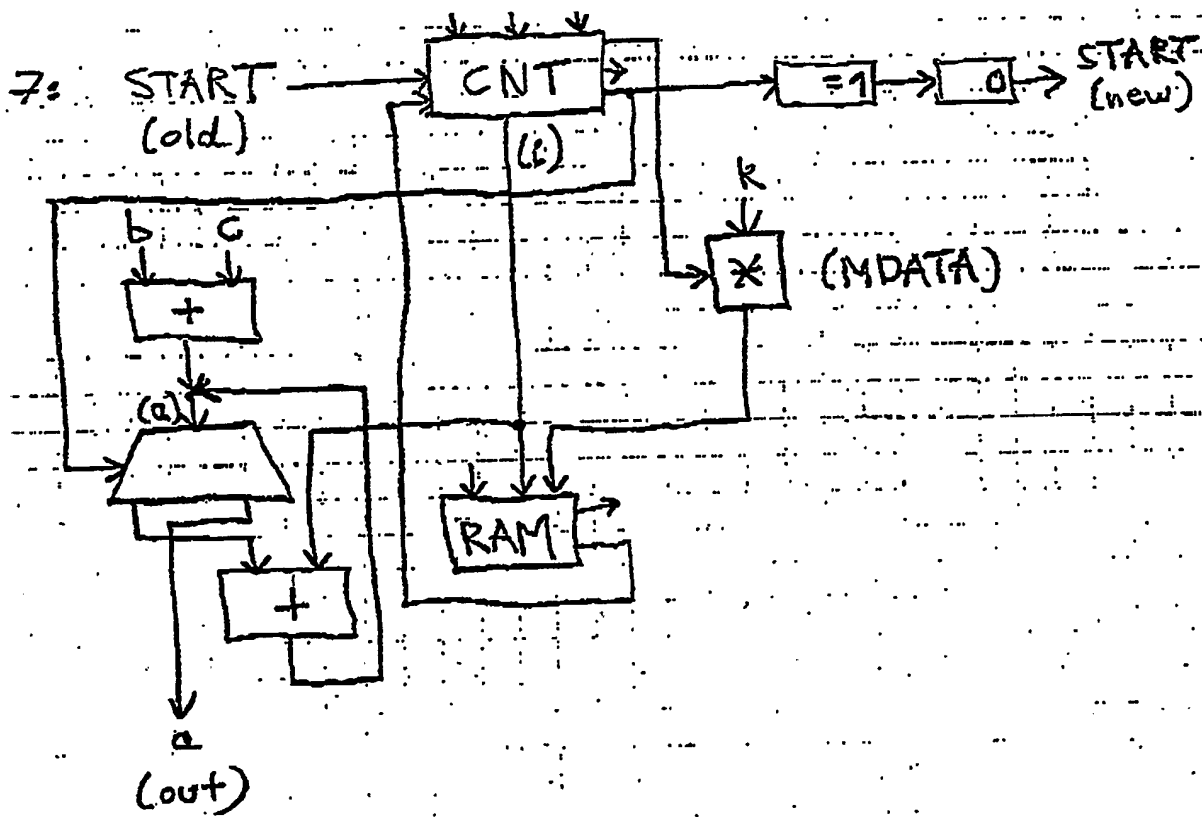 7: START
(old)
CNT
=1
0
START
(new)
(i)
k
b c
+
*
(MDATA)
(a)
RAM
+
a
(out)